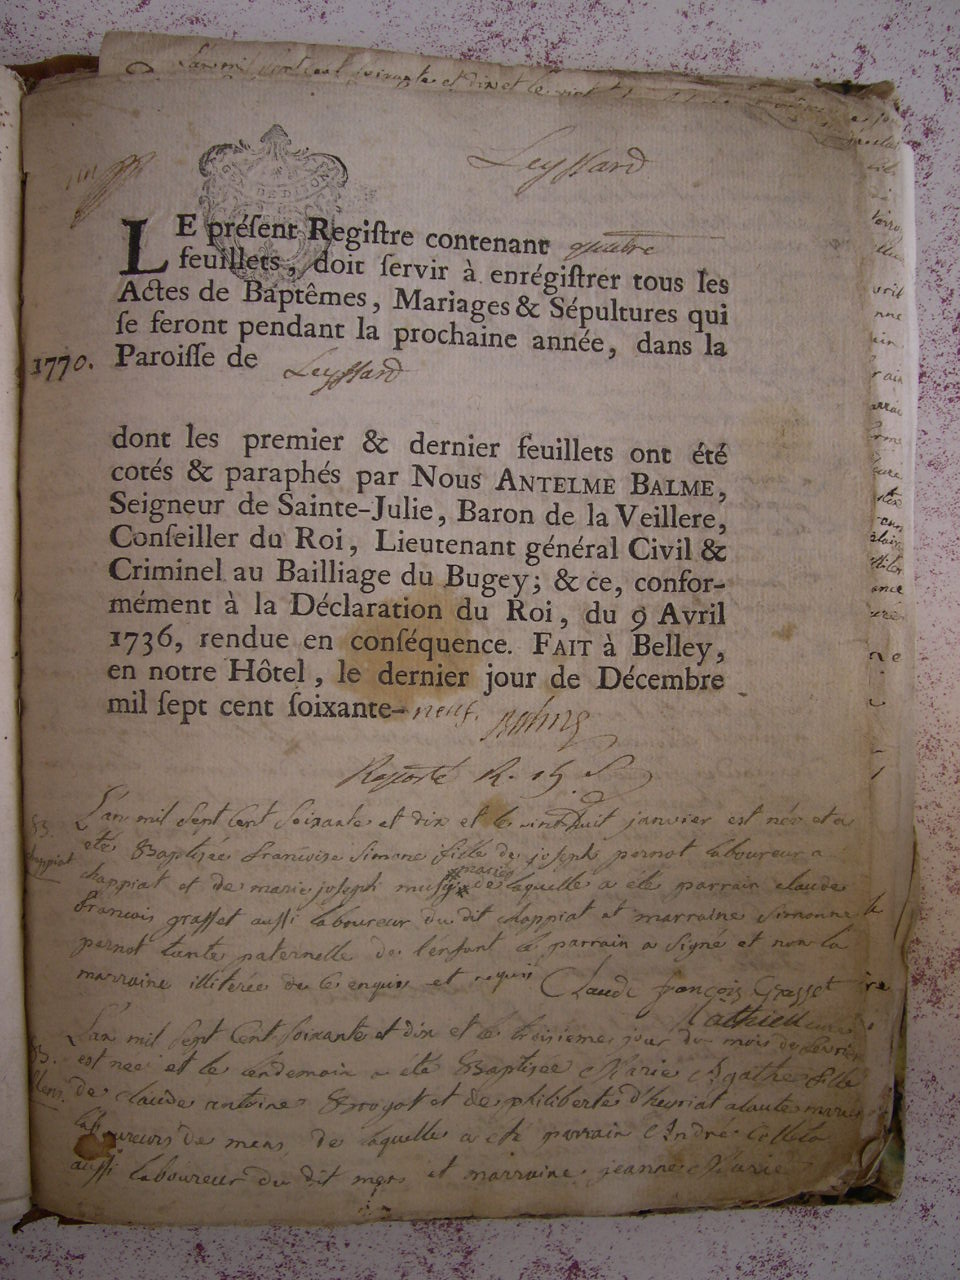 L'an mil sept cent soixante et dix et le vint
Leyssard
LE présent Registre contenant quatre
feuillets, doit servir à enrégistrer tous les
Actes de Baptêmes, Mariages & Sépultures qui
se feront pendant la prochaine année, dans la
1770. Paroisse de Leyssard
dont les premier & dernier feuillets ont été
cotés & paraphés par Nous ANTELME BALME,
Seigneur de Sainte-Julie, Baron de la Veillere,
Conseiller du Roi, Lieutenant général Civil &
Criminel au Bailliage du Bugey; & ce, confor-
mément à la Déclaration du Roi, du 9 Avril
1736, rendue en conséquence. FAIT à Belley,
en notre Hôtel, le dernier jour de Décembre
mil sept cent soixante-neuf. Balme
L'an mil sept cent soixante et dix et le vint huit janvier est née et a
été Baptisée francoise Simone fille de joseph pernot laboureur a
chappiat et de marie joseph musy mariés de laquelle a été parrain claude
francois grasset aussi laboureur du dit chappiat et marraine simonne
pernot tante paternelle de l'enfant le parrain a signé et non la
marraine illiterée de ce enquis et requis Claude françois Grasset
Mathieu curé
L'an mil sept cent soixante et dix et le troisieme jour du mois de fevrier
est née et le lendemain a été Baptisée Marie Agathe fille
de claude antoine et de philiberte d'heyriat alaute mariés
laboureurs de mens de laquelle a été parrain André
aussi laboureur du dit mens et marraine jeanne Marie